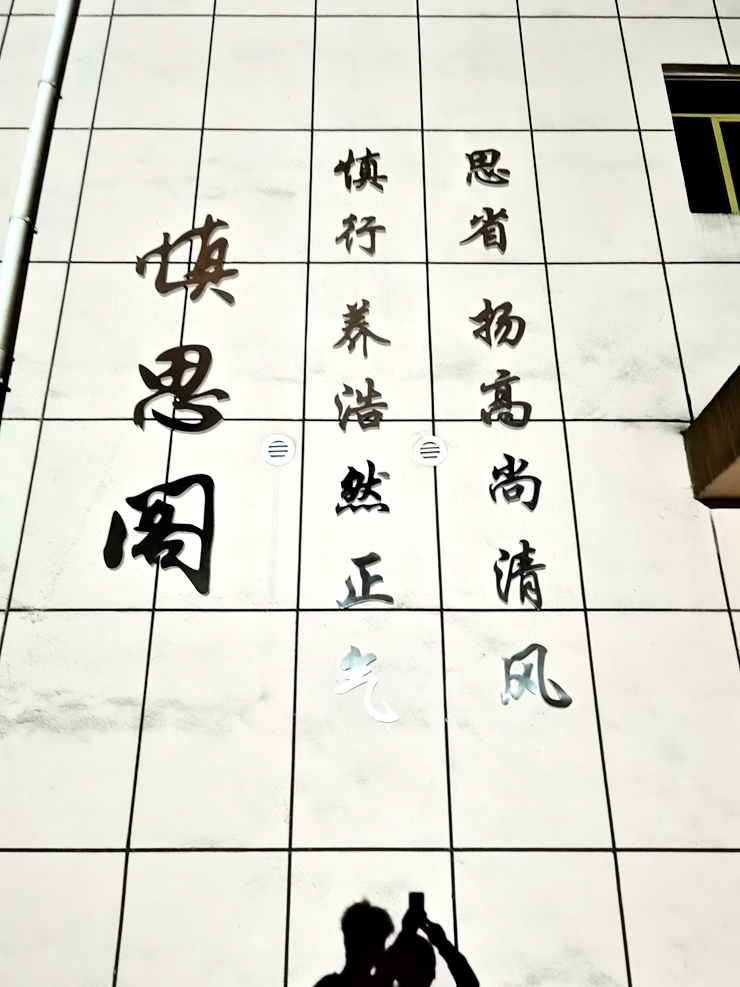 慎思阁
慎行养浩然正气
思省扬高尚清风